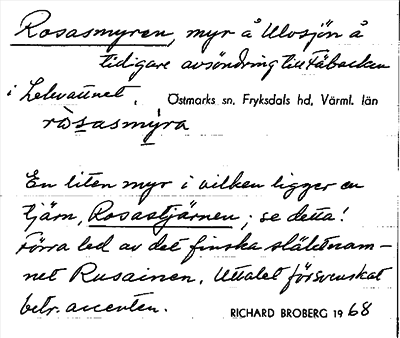 Rosasmyren, myr å Ulvsjön å
tidigare avsöndring till Fäbacken
i Lekvattnet. Östmarks sn, Fryksdals hd, Värml. län
ròsasmýra
En liten myr i vilken ligger en
tjärn, Rosastjärnen; se detta!
Förra led av det finska släktnam-
net Rusainen. Uttalet försvenskat
betr. accenten. RICHARD BROBERG 1968